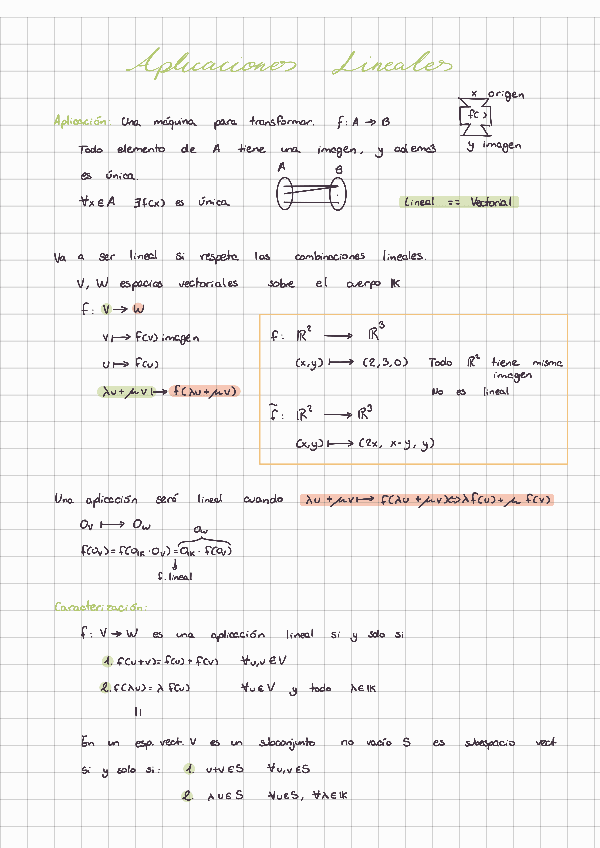 Aplicaciones Lineales
x origen
Aplicación: Una máquina para transformar. f: A → B
f( )
Todo elemento de A tiene una imagen, y además
y imagen
es única.
A B
∀x ∈ A ∃f(x) es única
Lineal == Vectorial
Va a ser lineal si respeta las combinaciones lineales.
V, W espacios vectoriales sobre el cuerpo K
f: V → W
v ↦ f(v) imagen
u ↦ f(u)
λu + μv ↦ f(λu + μv)
f: ℝ² → ℝ³
(x,y) ↦ (2,3,0) Todo ℝ² tiene misma
imagen
No es lineal
f̃: ℝ² → ℝ³
(x,y) ↦ (2x, x-y, y)
Una aplicación será lineal cuando λu + μv ↦ f(λu + μv) ⇔ λf(u) + μ f(v)
0v ↦ 0w
0w
f(0v) = f(0K · 0v) = 0K · f(0v)
f. lineal
Caracterización:
f: V → W es una aplicación lineal si y solo si
1. f(u+v) = f(u) + f(v) ∀u,v ∈ V
2. f(λu) = λ f(u) ∀u ∈ V y todo λ ∈ K
||
En un esp. vect. V es un subconjunto no vacío S es subespacio vect
si y solo si: 1. u+v ∈ S ∀u,v ∈ S
2. λu ∈ S ∀u ∈ S, ∀λ ∈ K